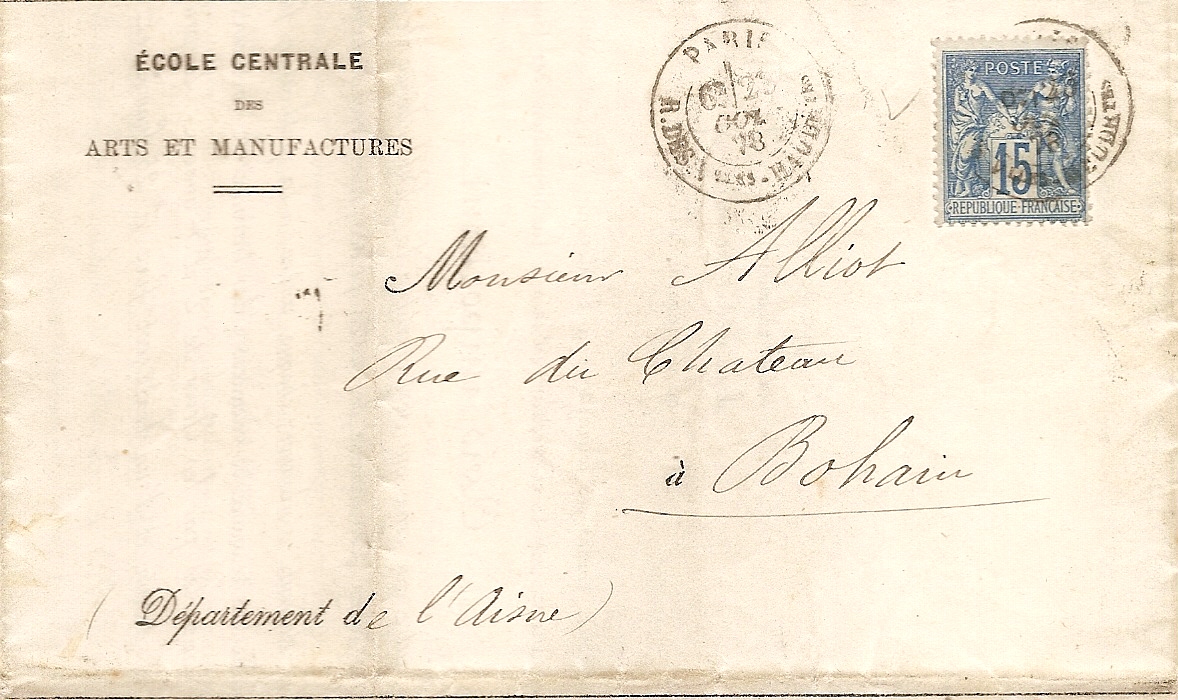 ÉCOLE CENTRALE
DES
ARTS ET MANUFACTURES
PARIS
R. DES HAUDTES
OCT.
78
POSTE
15
REPUBLIQUE FRANÇAISE
Monsieur Alliot
Rue du Chateau
à Bohain
( Département de l'Aisne )